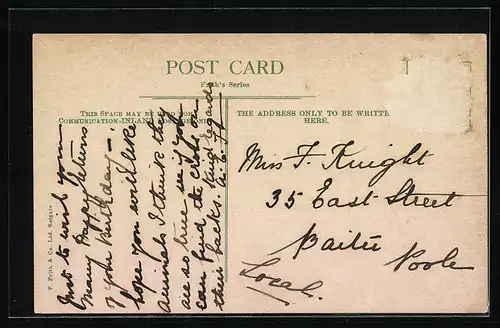 POST CARD
Frith's Series
THIS SPACE MAY BE USED FOR
COMMUNICATION-INLAND POSTAGE ONLY
THE ADDRESS ONLY TO BE WRITTE
HERE.
Just to wish you
many Happy Returns
of your Birthday –.
hope you will like
animals I think they
are so true see if you
can find the cross on
their backs. Kind regards
Miss F. Knight
35 East Street
Poole
Local.
F. Frith & Co. Ltd. Reigate